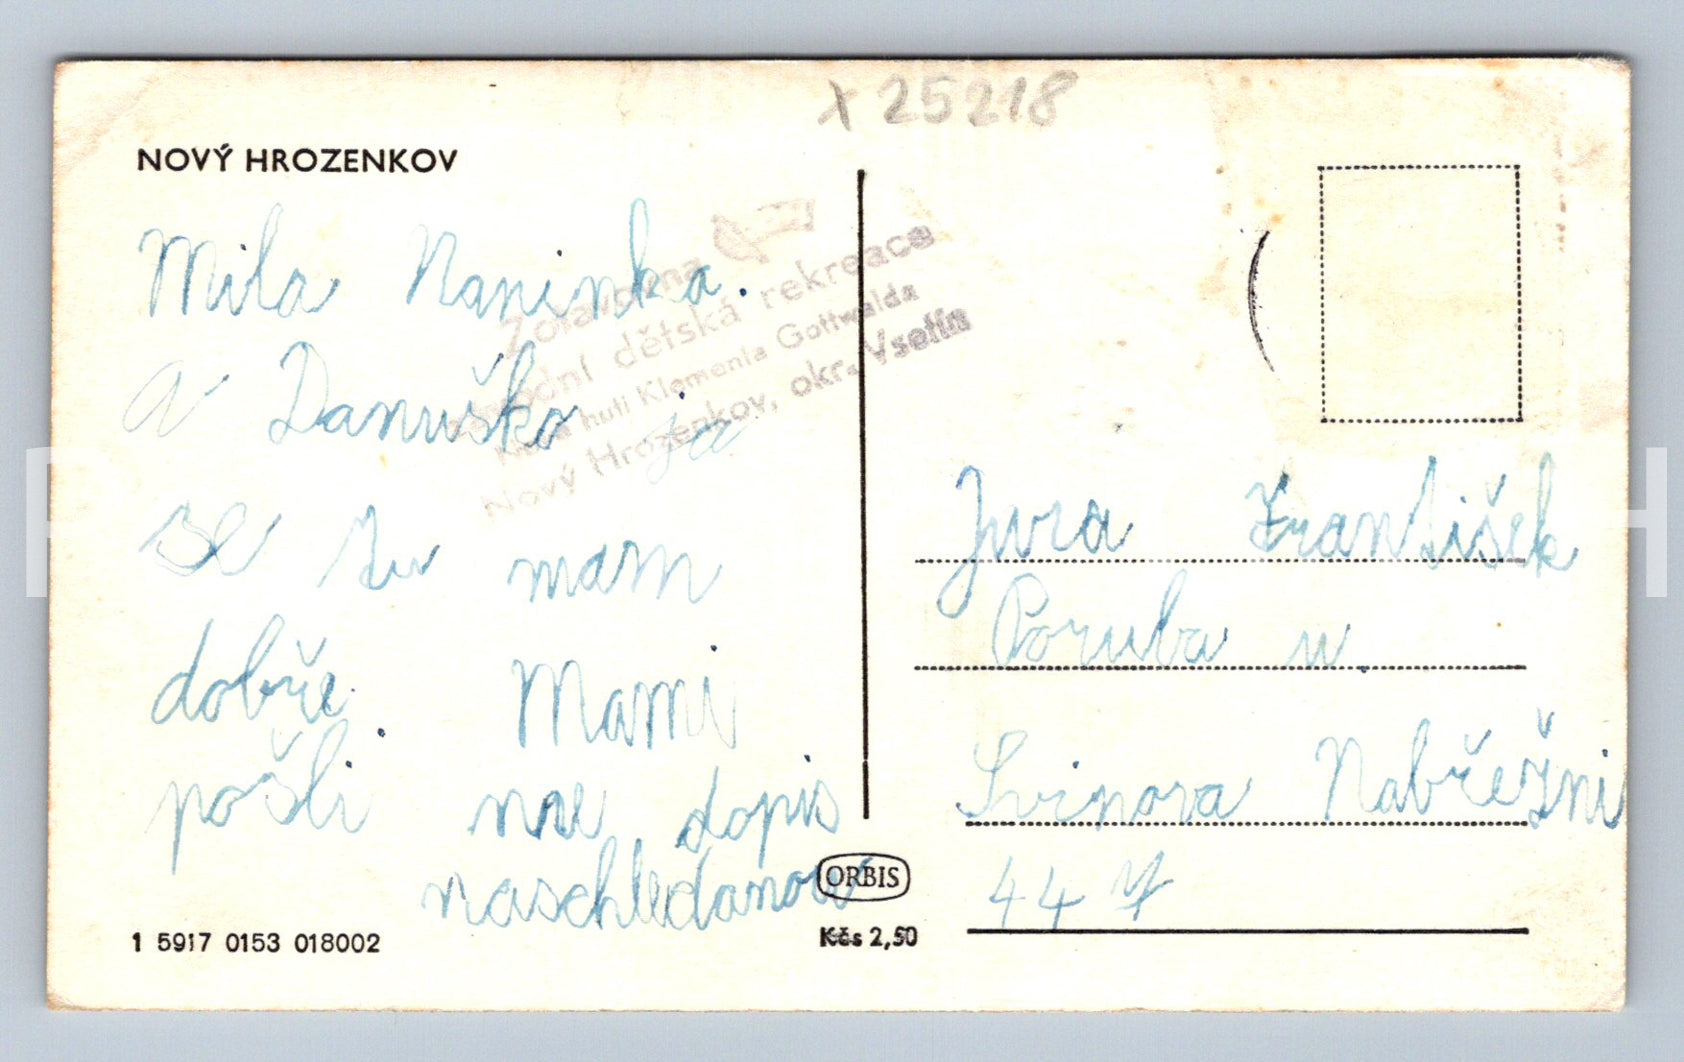 x 25218
NOVÝ HROZENKOV
Mila Maninka.
a Danuško ja
se tu mam
dobře. Mami
pošli mne dopis
naschledanou
Zotavovna
závodní dětská rekreace
Nová huti Klementa Gottwalda
Nový Hrozenkov, okr. Vsetín
Jura František
Poruba u.
Svinova Nabřežni
447
ORBIS
Kčs 2,50
1 5917 0153 018002